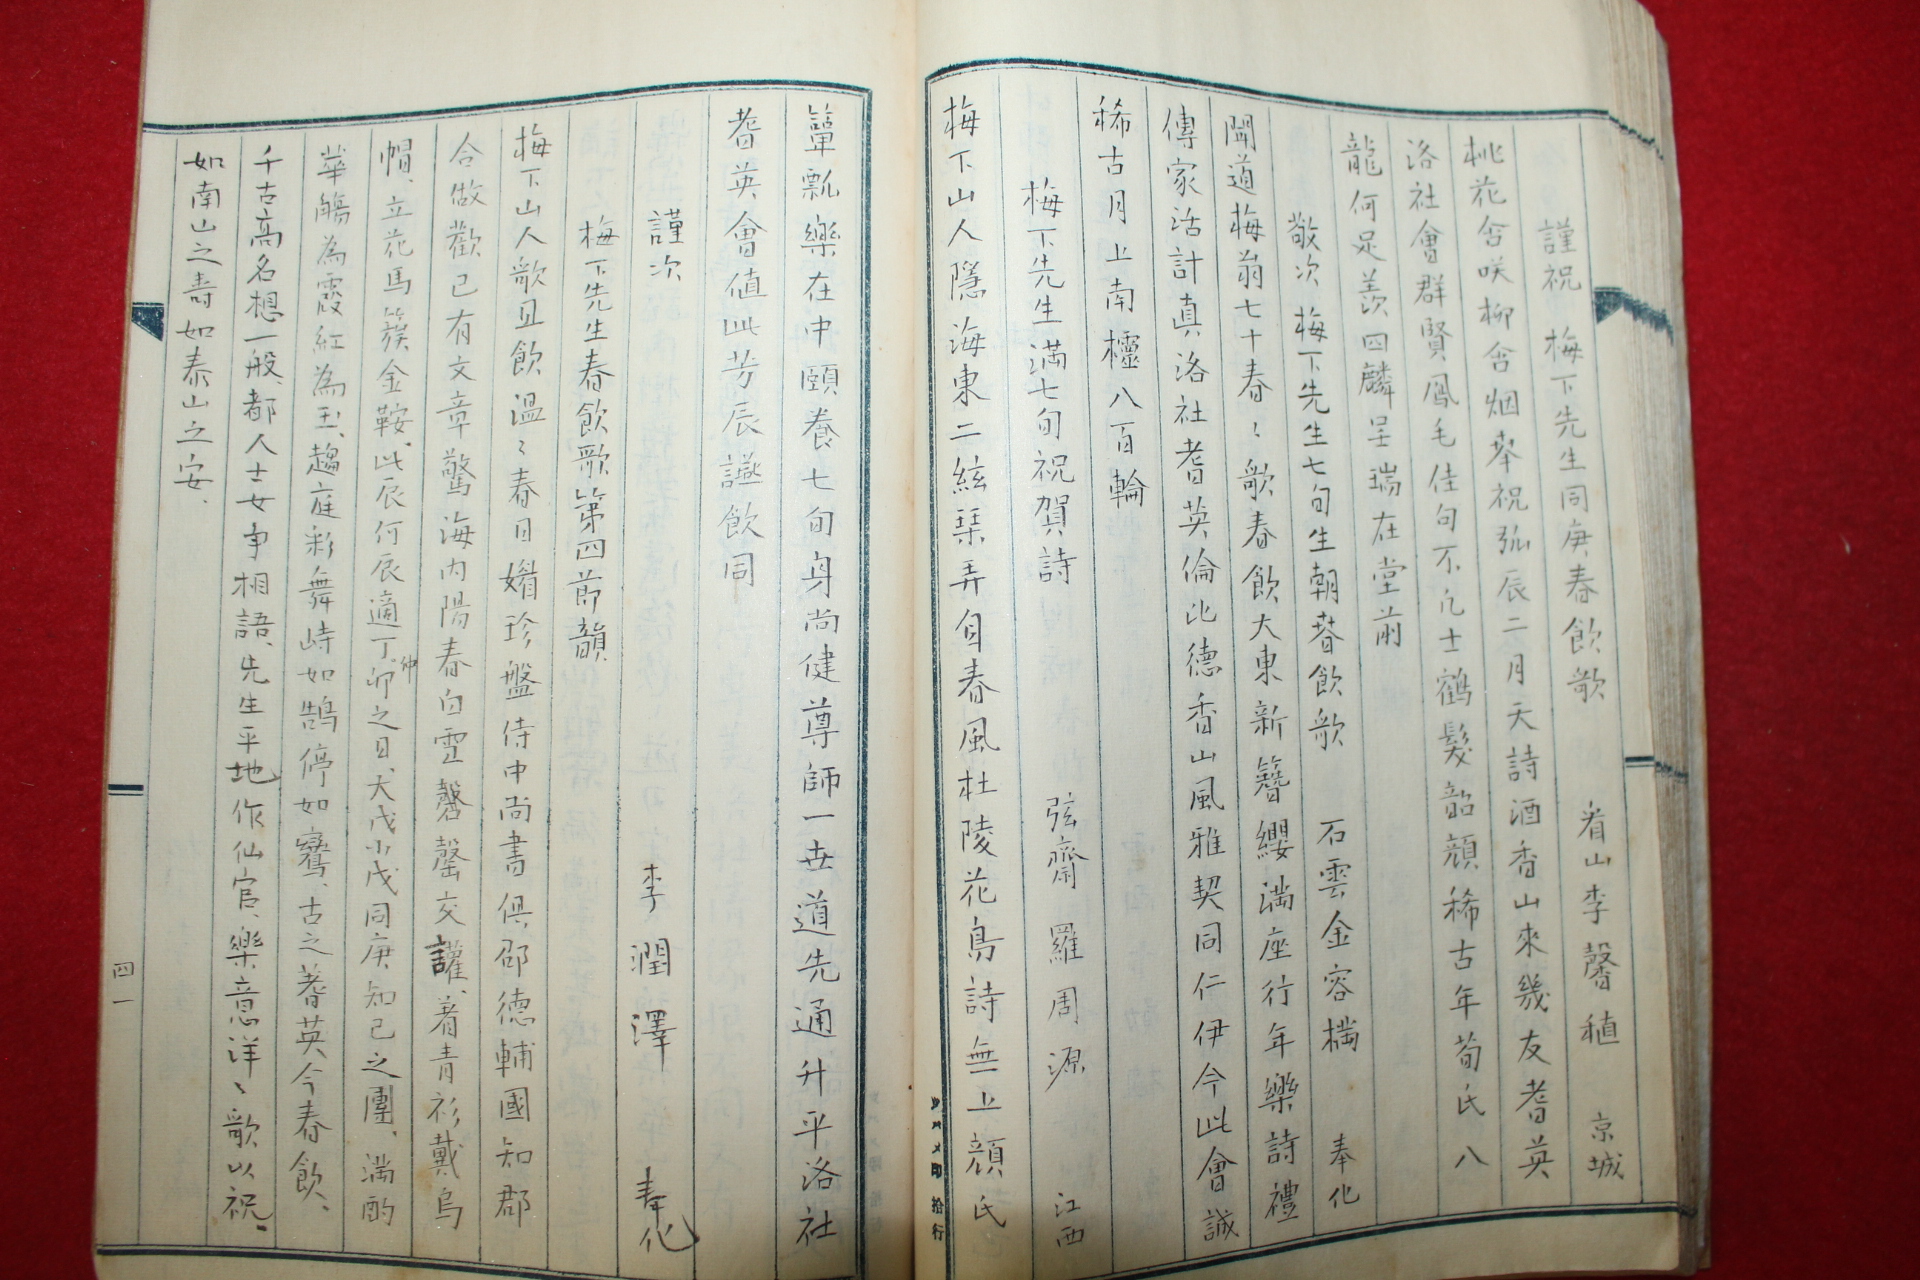 謹祝 梅下先生同庚春飮歌 看山李馨稙 京城
桃花含咲柳含烟奉祝弧辰二月天詩酒香山來幾友耆英
洛社會群賢鳳毛佳句不凡士鶴髮韶顔稀古年荀氏八
龍何足羨四麟呈瑞在堂前
敬次 梅下先生七旬生朝春飮歌 石雲金容 奉化
聞道梅翁七十春〻歌春飮大東新簪纓滿座行年樂詩禮
傳家活計眞洛社耆英倫比德香山風雅契同仁伊今此會誠
稀古月上南櫺八百輪
梅下先生滿七旬祝賀詩 弦齋 羅周源 江西
梅下山人隱海東二絃琹弄自春風杜陵花鳥詩無上顔氏
簞瓢樂在中頤養七旬身尚健尊師一世道先通升平洛社
耆英會値此芳辰讌飮同
謹次 李潤澤 奉化
梅下先生春飮歌第四節韻
梅下山人歌且飮溫〻春日媚珍盤侍中尚書俱邵德輔國知郡
合做歡已有文章驚海內陽春白雪磬罄交讙、着靑衫戴烏
帽、立花馬簇金鞍、此辰何辰適丁仲卯之日、大戊小戊同庚知己之團、滿酌
華觴為霞紅為玉、趨庭彩舞峙如鵠停如鸞、古之耆英今春飮、
千古高名想一般、都人士女爭相語、先生平地作仙官、樂意洋〻歌以祝、
如南山之壽如泰山之安、
四一
印 拾行